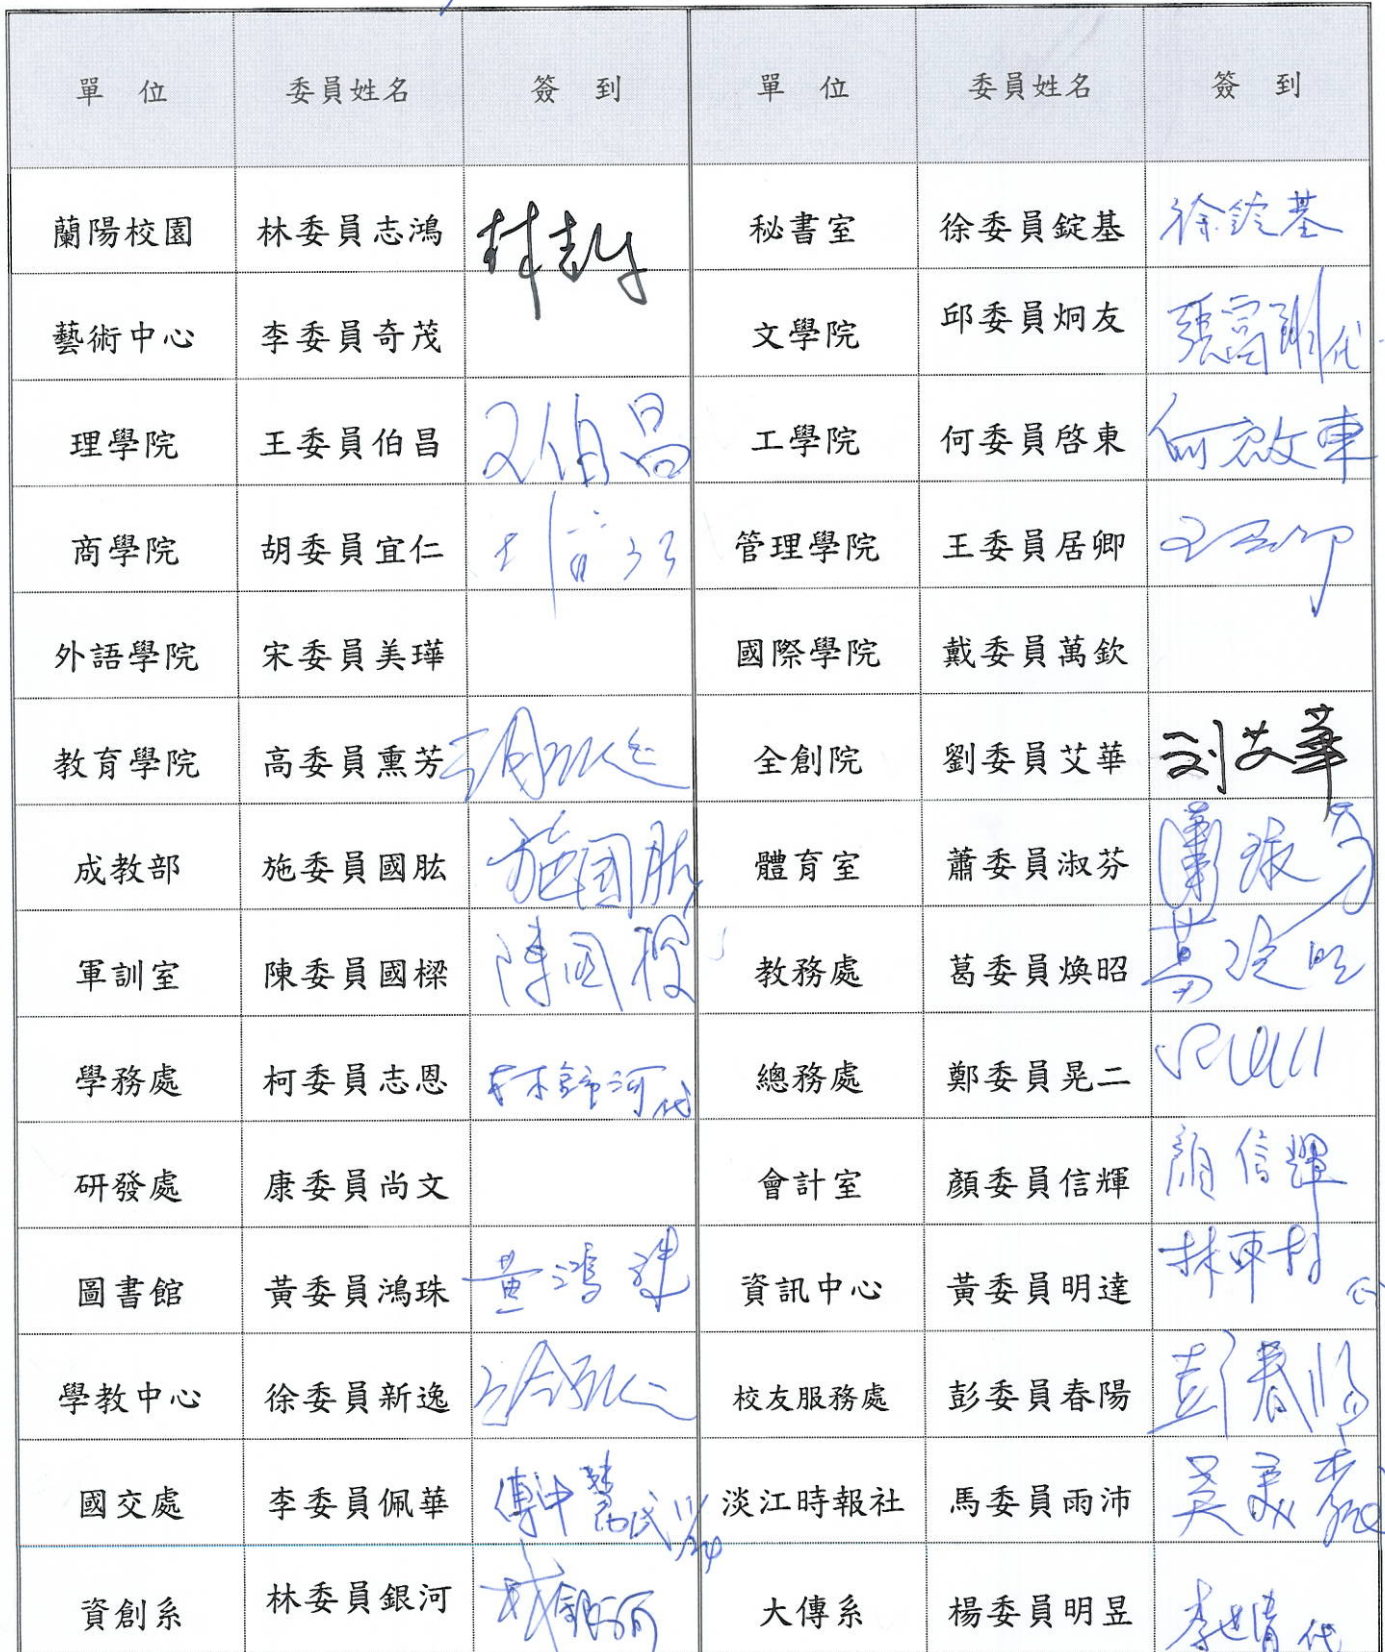 單 位 委員姓名 簽 到 單 位 委員姓名 簽 到
蘭陽校園 林委員志鴻 秘書室 徐委員錠基 徐錠基
藝術中心 李委員奇茂 文學院 邱委員炯友 張富剛代
理學院 王委員伯昌 王伯昌 工學院 何委員啓東 何啟東
商學院 胡委員宜仁 管理學院 王委員居卿
外語學院 宋委員美璍 國際學院 戴委員萬欽
教育學院 高委員熏芳 全創院 劉委員艾華 刘艾華
成教部 施委員國肱 施國肱 體育室 蕭委員淑芬 蕭淑芬
軍訓室 陳委員國樑 陳國樑 教務處 葛委員煥昭 葛煥昭
學務處 柯委員志恩 代 總務處 鄭委員晃二
研發處 康委員尚文 會計室 顏委員信輝 顏信輝
圖書館 黃委員鴻珠 黃鴻珠 資訊中心 黃委員明達 林東村 代
學教中心 徐委員新逸 校友服務處 彭委員春陽 彭春陽
國交處 李委員佩華 淡江時報社 馬委員雨沛
資創系 林委員銀河 林銀河 大傳系 楊委員明昱 代